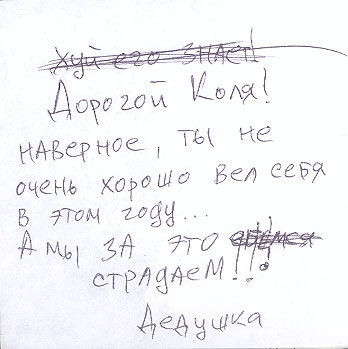 Хуй его знает!
Дорогой Коля!
наверное, ты не
очень хорошо вел себя
в этом году...
А мы за это
страдаем!!!
Дедушка